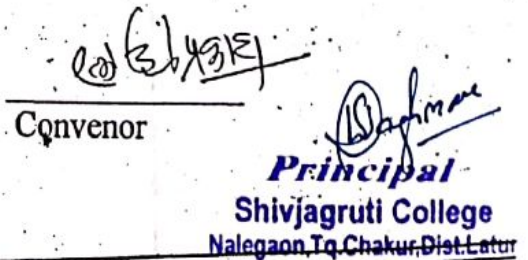 Convenor
Principal
Shivjagruti College
Nalegaon,Tq.Chakur,Dist.Latur